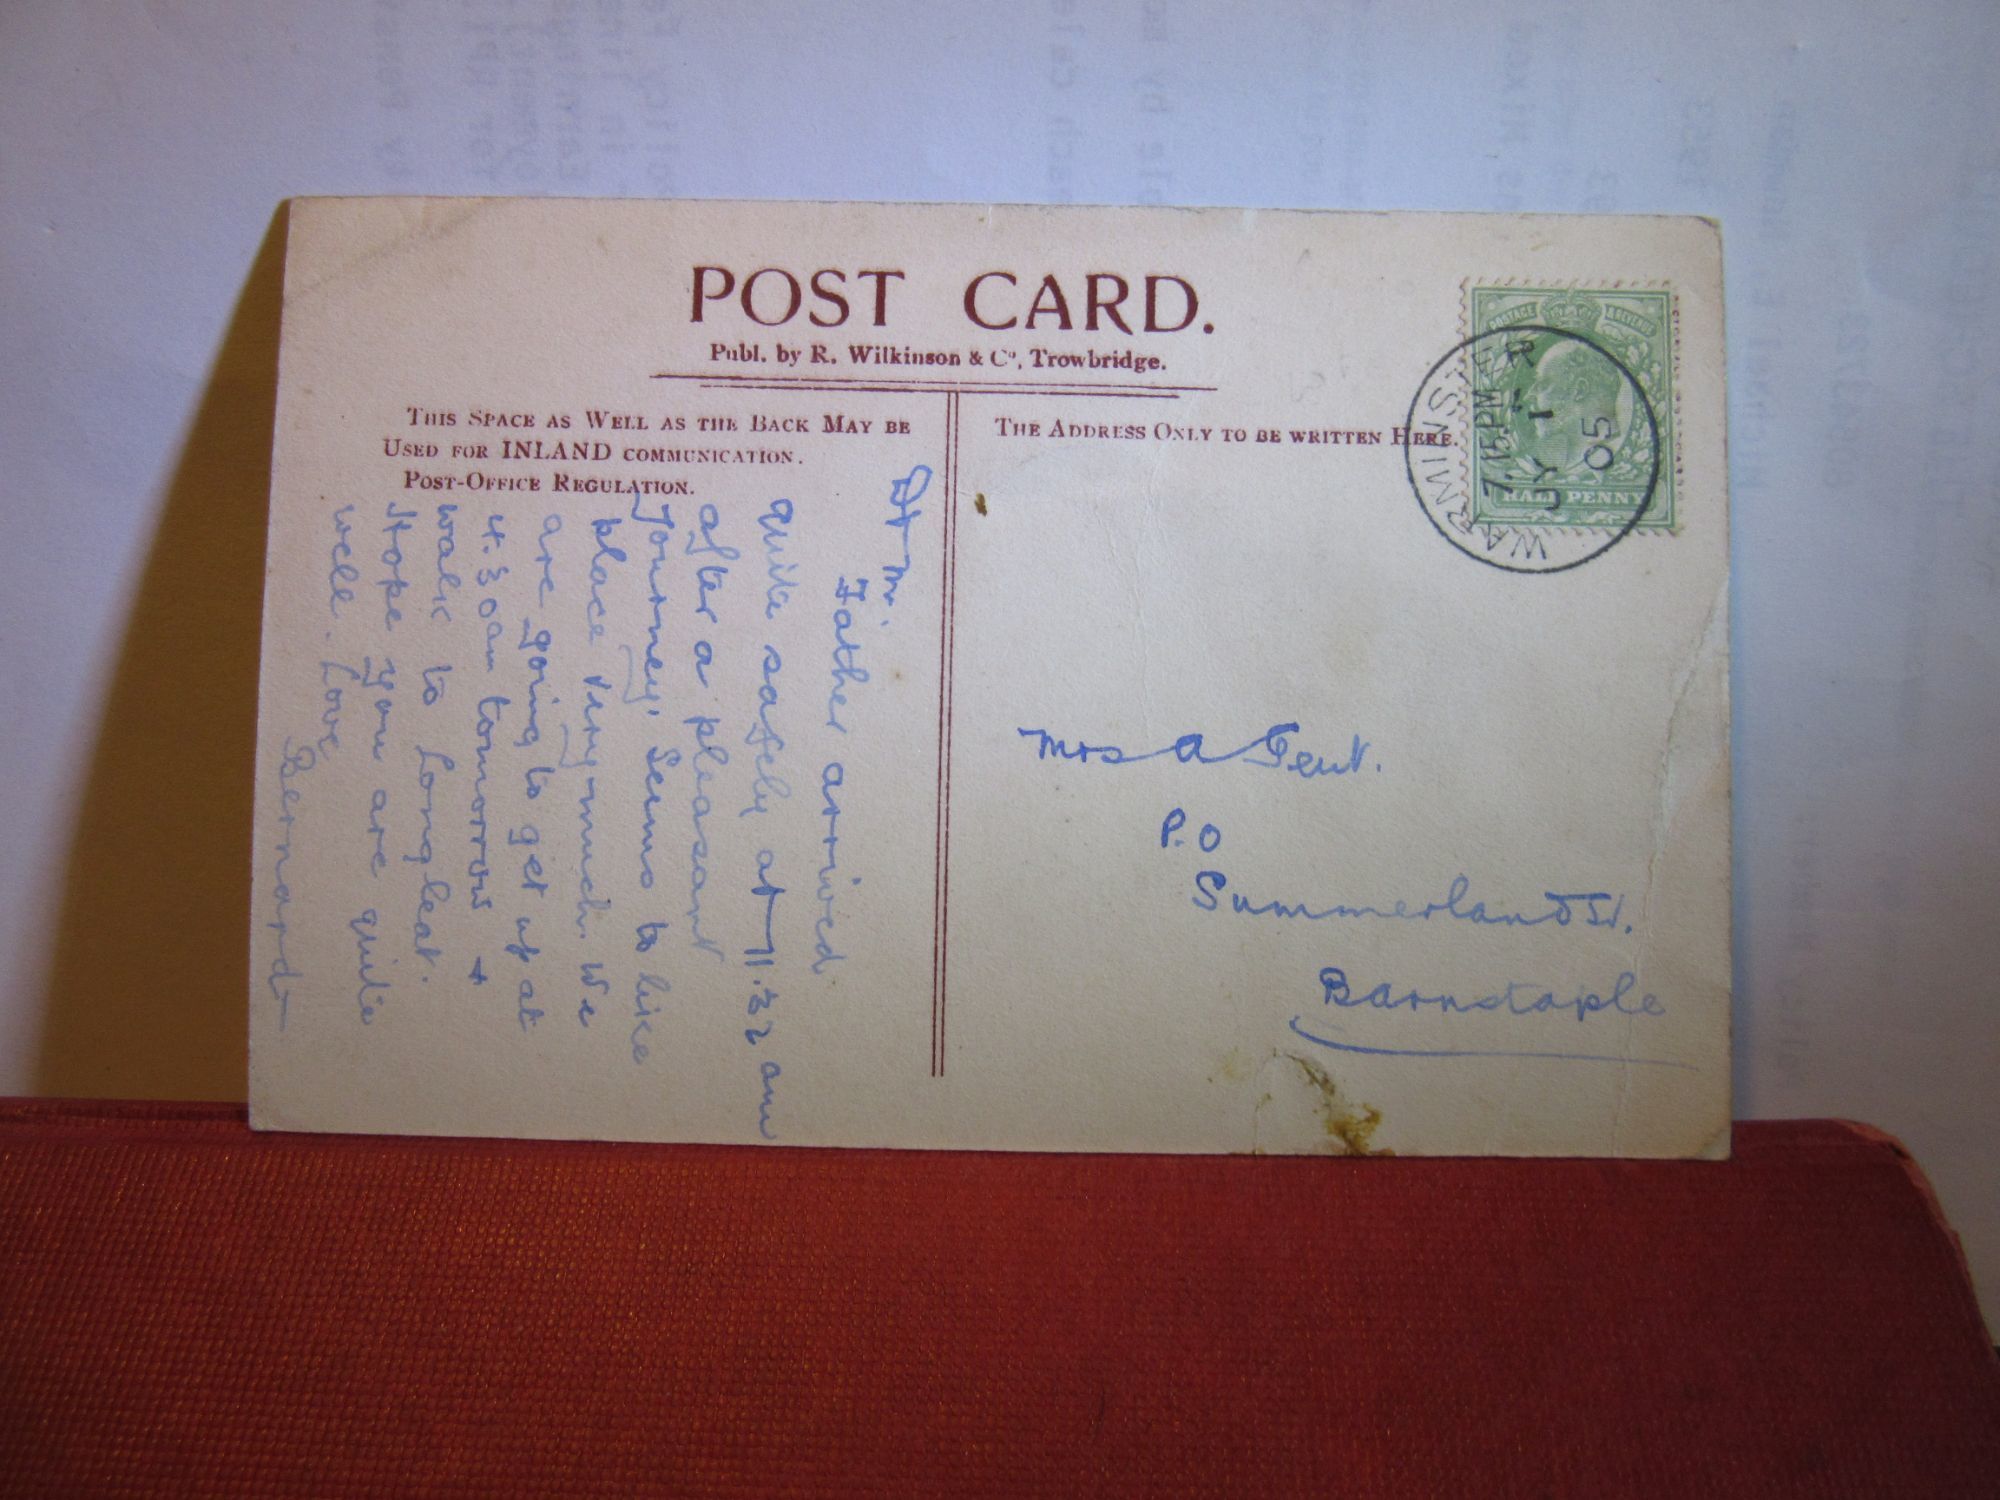 POST CARD.
Publ. by R. Wilkinson & Co, Trowbridge.
THIS SPACE AS WELL AS THE BACK MAY BE
USED FOR INLAND COMMUNICATION.
POST-OFFICE REGULATION.
THE ADDRESS ONLY TO BE WRITTEN HERE.
POSTAGE & REVENUE
HALF PENNY
WARMINSTER
7.15PM
JY 1
05
Father arrived
quite safely at 11.32 am
after a pleasant
journey, Seems to like
place very much. We
are going to get up at
4.30am tomorrow +
walk to Longleat.
Hope you are quite
well. Love
Bernard
Mrs A Gent.
P.O
Summerland St.
Barnstaple